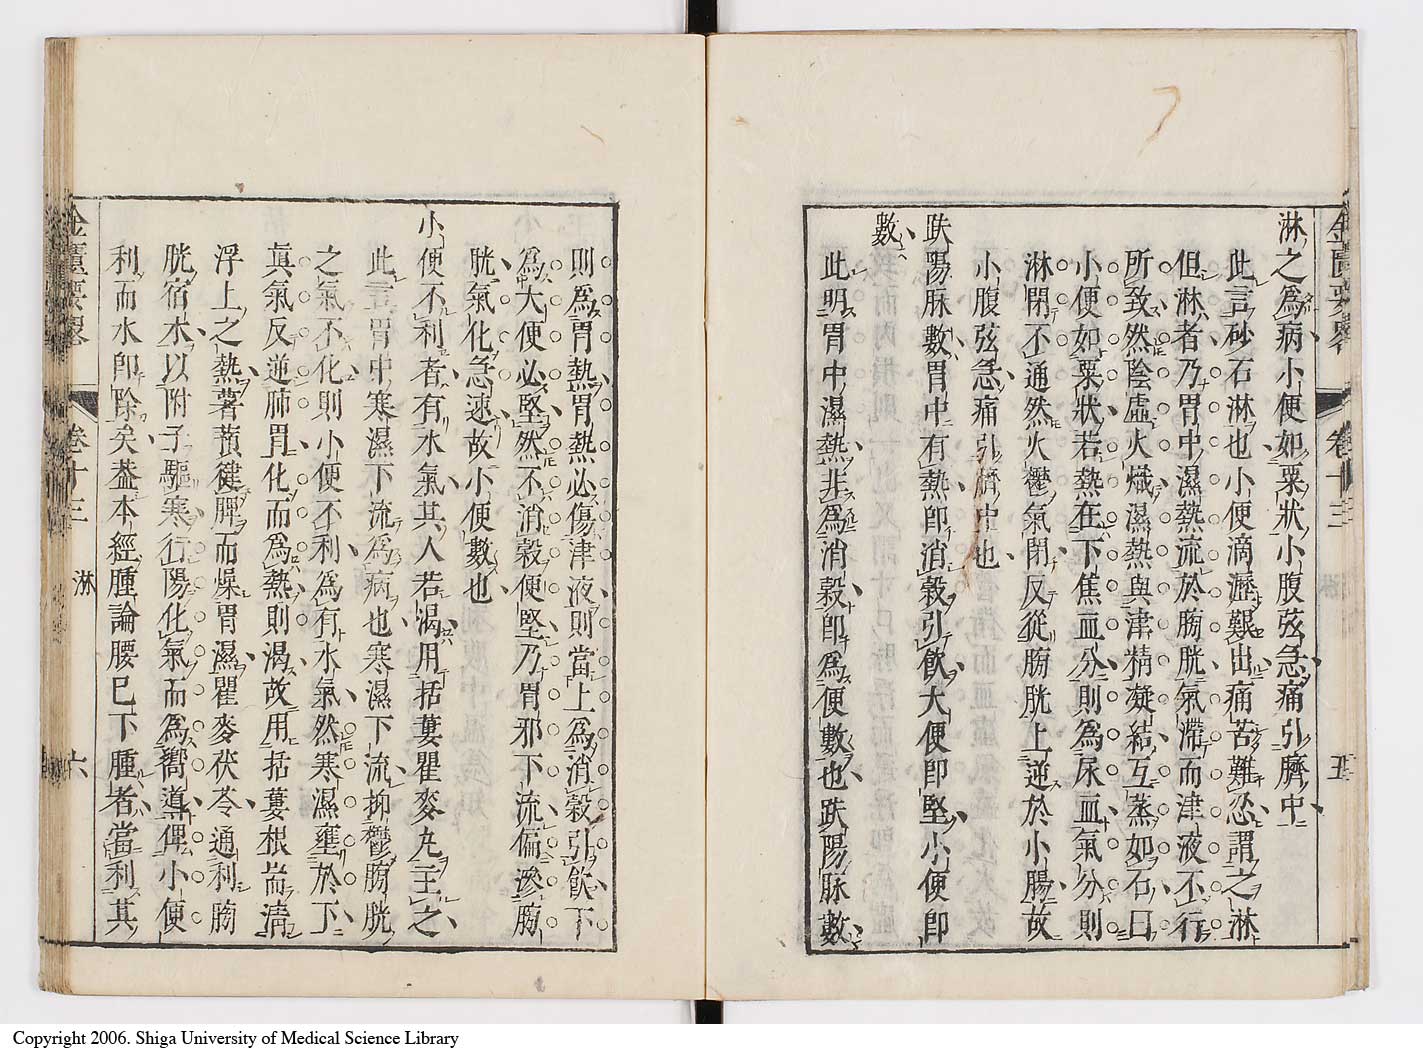 金匱要畧 卷十三 淋 五
淋之爲病小便如粟狀小腹弦急痛引臍中
此言砂石淋也小便滴瀝艱出痛苦難忍謂之淋
但淋者乃胃中濕熱流於膀胱氣滯而津液不行
所致然陰虛火熾濕熱與津精凝結互蒸如石曰
小便如粟狀若熱在下焦血分則爲尿血氣分則
淋閉不通然火鬱氣閉反從膀胱上逆於小腸故
小腹弦急痛引臍中也
趺陽脉數胃中有熱卽消穀引飲大便卽堅小便卽
數
此明胃中濕熱非爲消穀卽爲便數也趺陽脉數
則爲胃熱胃熱必傷津液則當上爲消穀引飲下
爲大便必堅然不消穀便堅乃胃邪下流偏滲膀
胱氣化急速故小便數也
小便不利者有水氣其人若渴用括蔞瞿麥丸主之
此言胃中寒濕下流爲病也寒濕下流抑鬱膀胱
之氣不化則小便不利爲有水氣然寒濕壅於下
眞氣反逆肺胃化而爲熱則渴故用括蔞根耑淸
浮上之熱薯蕷健脾而燥胃濕瞿麥茯苓通利膀
胱宿水以附子驅寒行陽化氣而爲嚮導俾小便
利而水卽除矣葢本經腫論腰已下腫者當利其
金匱要畧 卷十三 淋 六
Copyright 2006. Shiga University of Medical Science Library